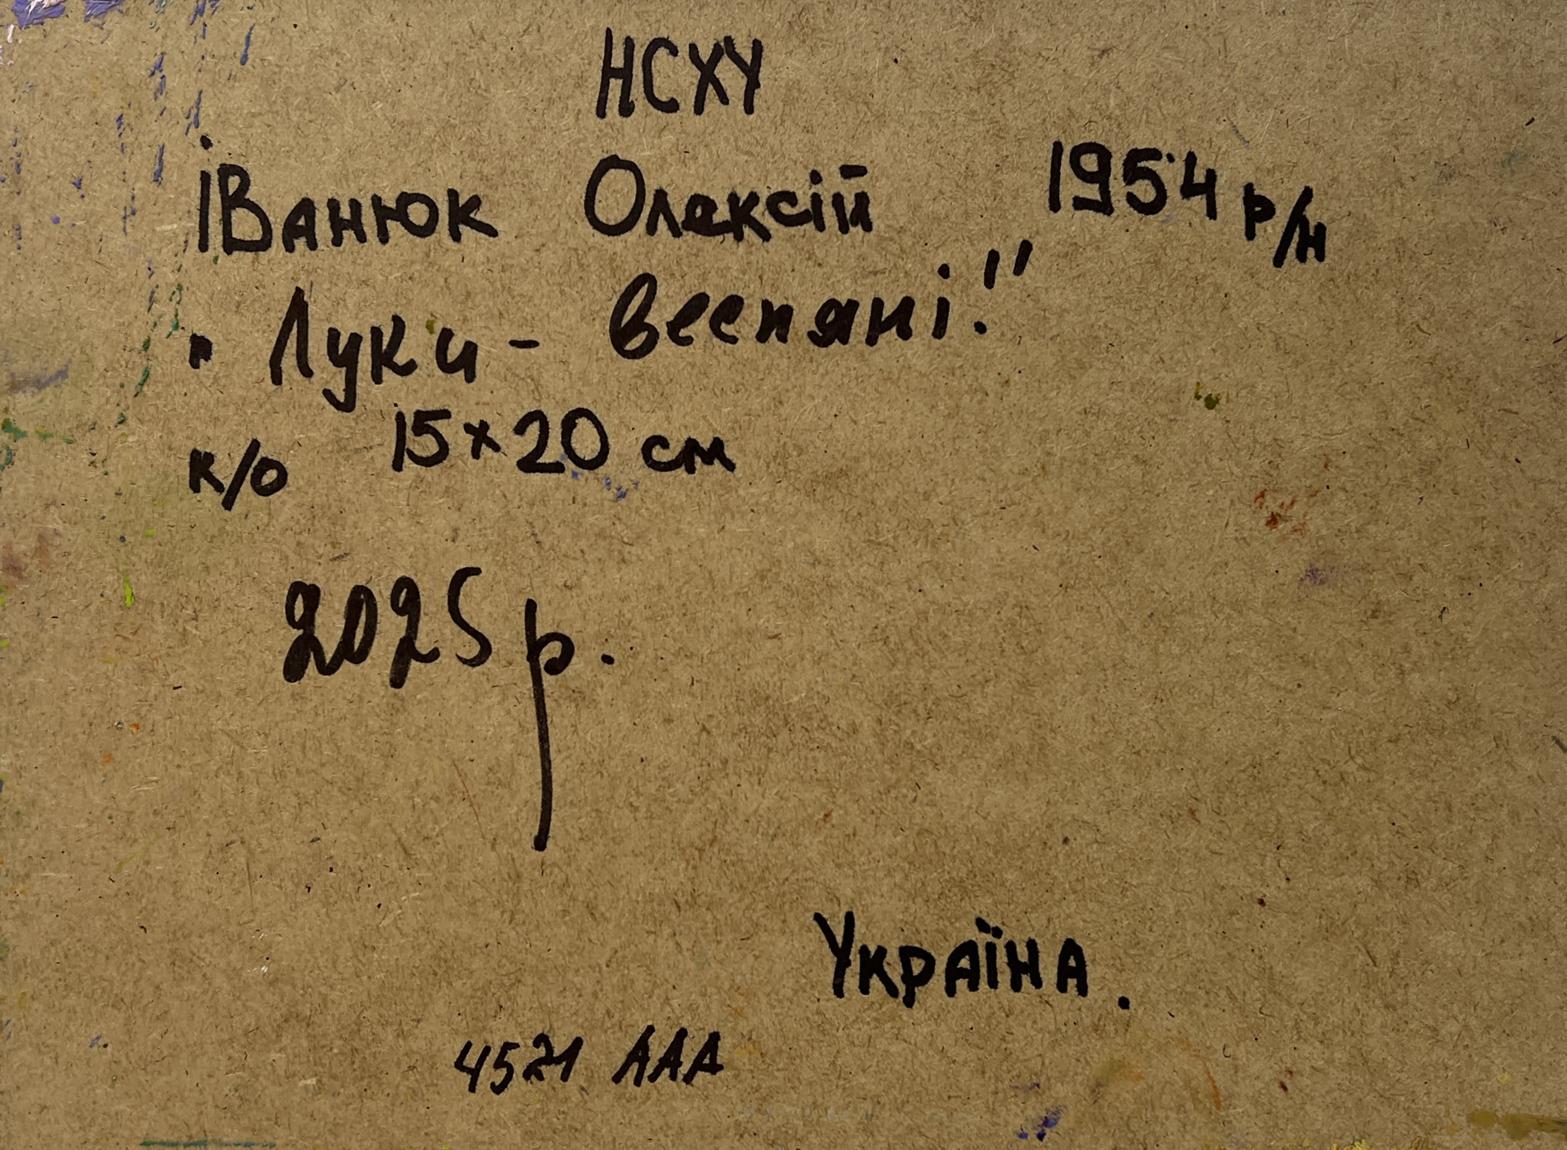 НСХУ
Іванюк Олексій 1954 р/н
"Луки - весняні."
к/о 15x20 см
2025 р.
Україна.
4521 ААА